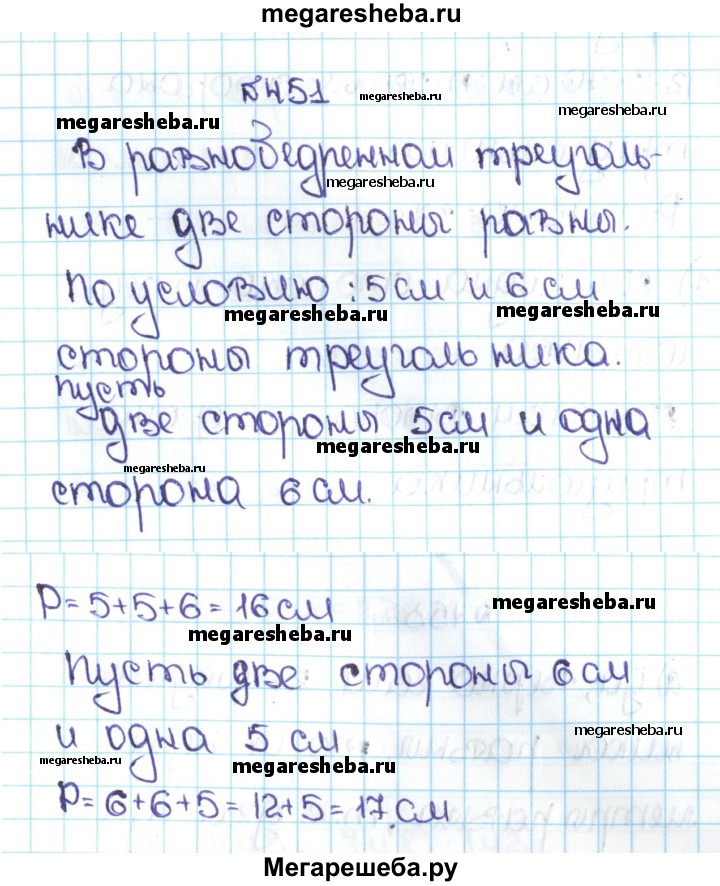 megaresheba.ru
№451
megaresheba.ru
megaresheba.ru
megaresheba.ru
В равнобедренном треуголь-
megaresheba.ru
нике две стороны равны.
По условию: 5 см и 6 см
megaresheba.ru
megaresheba.ru
стороны треугольника.
пусть
две стороны 5 см и одна
megaresheba.ru
megaresheba.ru
сторона 6 см.
P = 5+5+6 = 16 см
megaresheba.ru
megaresheba.ru
Пусть две стороны 6 см
и одна 5 см.
megaresheba.ru
megaresheba.ru
megaresheba.ru
P = 6+6+5 = 12+5 = 17 см
Мегарешеба.ру